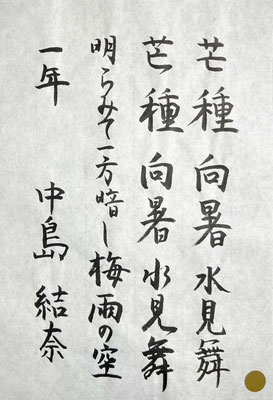 芒種 向暑 水見舞
芒種 向暑 水見舞
明らみて一方暗し梅雨の空
一年 中島 結奈